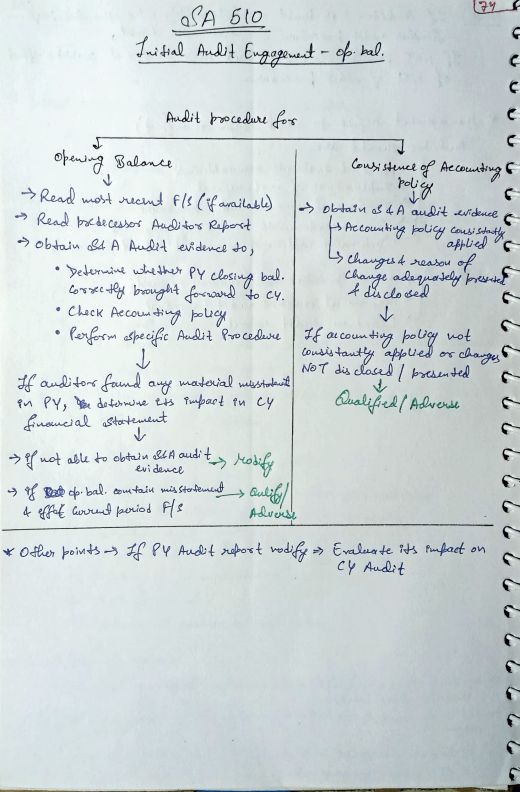 74
SA 510
Initial Audit Engagement - op. bal.
Audit procedure for
Opening Balance
→ Read most recent F/S (if available)
→ Read predecessor Auditor Report
→ obtain S&A Audit evidence to,
• Determine whether PY closing bal.
correctly brought forward to CY.
• Check Accounting policy
• Perform specific Audit Procedure
If auditor found any material misstatement
in PY, determine its impact in CY
financial statement
→ if not able to obtain S&A audit
evidence → modify
→ if op. bal. contain misstatement
& effect current period F/S → Qulify/
Adverse
Consistence of Accounting
policy
→ obtain S&A audit evidence
Accounting policy consistently
applied
Changes & reason of
change adequately presented
& disclosed
If accounting policy not
consistantly applied or changes
NOT disclosed / presented
Qualified / Adverse
* Other points → If PY Audit report modify → Evaluate its impact on
CY Audit